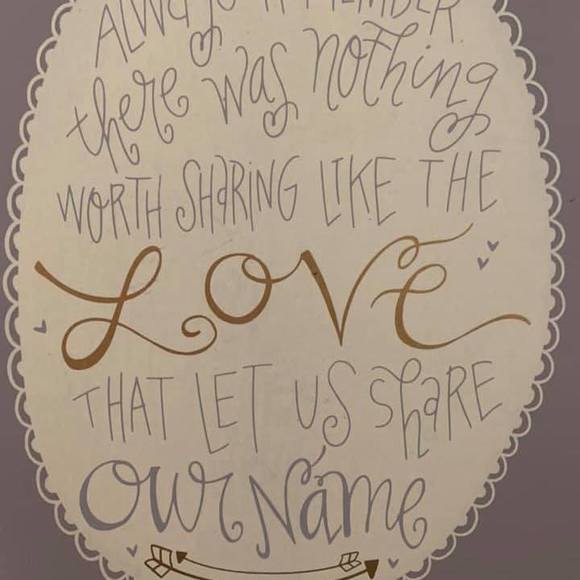 ALWAYS REMEMBER
there was nothing
WORTH SHARING LIKE THE
LOVE
THAT LET US ShaRE
Our Name